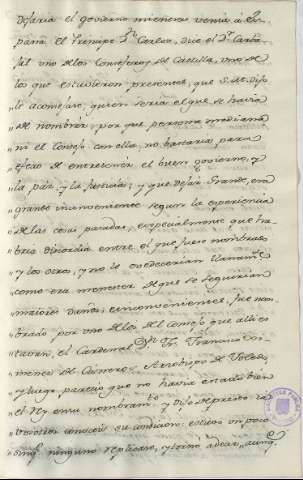 dejaria el gobierno mientras venia á Es-
paña el Principe Dn. Carlos, dice el Dr. Carba-
jal uno de los Consejeros de Castilla, uno de
los que estuvieron presentes, que S. A. dijo
„ le aconsejase, quien seria el que se havia
„ de nombrar, por que persona mediana,
„ ni el Consejo con ella, no bastaria para
„ efecto de entretener el buen govierno, y
„ la paz, y la Justicia, y que dejar Grande, era
„ grande inconveniente segun la esperiencia
„ de las cosas pasadas, especialmente que ha-
„ bria discordia entre el que fuese nombrado
„ y los otros, y no le obedecerian llanamte.
„ como era menester de que se seguirian
„ maiores daños, e inconvenientes, fue nom-
„ brado por uno de los del Consejo que alli es-
„ taban, el Cardenal Dn. Fr. Francisco Xi-
„ menez de Cisneros, Arzobispo de Toledo,
„ y luego parecio que no havia estado bien
„ el Rey en su nombramto. y dijo de presto: ya
„ vosotros conoceis su condicion: estubo un poco
„ sinqe. ninguno replicase, y torno á decar, aunq.